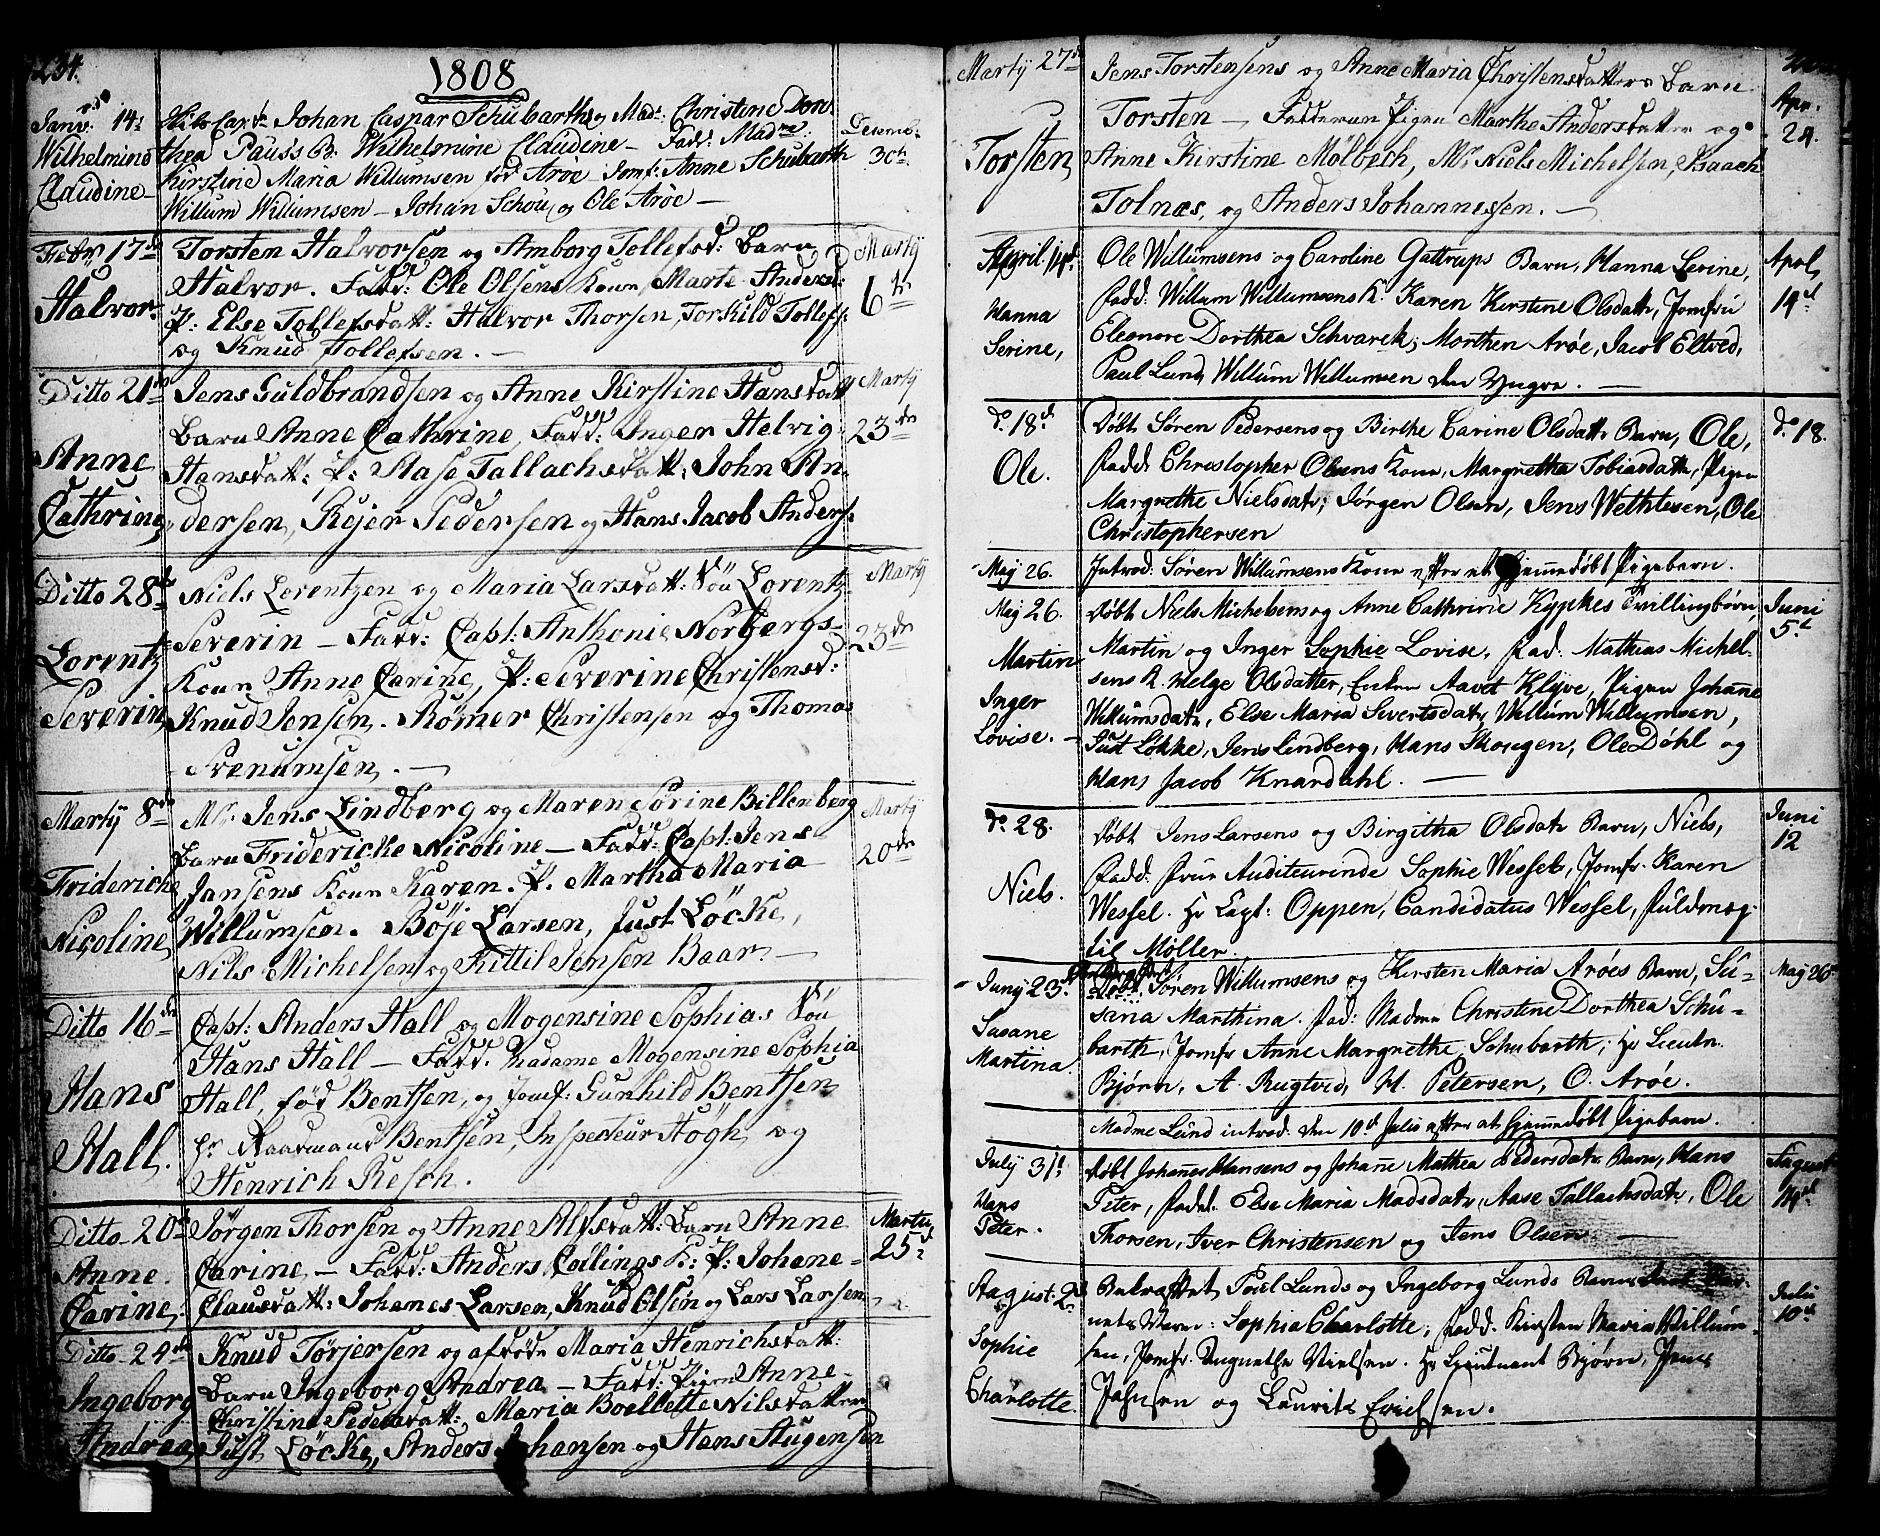 234.
1808
Janv: 14d
Wilhelmine
Claudine
Johan Caspar Schubarth og Mad: Christine Doro-
thea Pauss B: Wilhelmine Claudine – Fadd: Madme
Kirstine Maria Willumsen fød Arøe – Jomf: Anne Schubarth
Willum Willumsen – Johan Schou, og Ole Arøe –
Decemb:
30te
Febr: 17de
Halvor
Torsten Halvorsen og Amborg Tollefsd: Barn
Halvor. Fadd: Ole Olsens Kone, Marte Andersd:
P: Else Tollefsdatt: Halvor Thorsen, Torkild Tollefs:
og Knud Tollefsen. –
Martij
6te
Ditto 21de
Anne
Cathrine
Jens Guldbrandsen og Anne Kirstine Hansdatt
Barn Anne Cathrine, Fadd: Inger Helvig
Hansdatt: P: Aase Tallachsdatt: John An-
dersen, Rejer Pedersen og Hans Jacob Anders:
Martij
23de
Ditto 28de
Lorentz
Severin
Niels Lorentzen og Maria Larsdatt: Søn Lorentz
Severin – Fadd: Capt: Anthonie Norbergs
Kone Anne Carine, P: Severine Christensd:
Knud Jensen. Rømer Christensen og Thomas
Svenumsen. –
Martij
23de
Martij 8de
Fridericke
Nicoline
Mr: Jens Lindberg og Maren Sørine Billenberg
Barn Fridericke Nicoline – Fadd: Capt: Jens
Jansens Kone Karen. P. Martha Maria
Willumsen. Bøje Larsen, Just Løcke,
Nils Michelsen og Kittil Jensen Baar –
Martij
20de
Ditto 16de
Hans
Hall.
Capt: Anders Hall og Mogensine Sophias Søn
Hans Hall – Fadd: Madame Mogensine Sophia
Hall, fød Bentsen, og Jomf: Gunhild Bentsen
Hr Raadmand Bentsen, Inspecteur Høgh og
Henrich Resch.
Ditto 20de
Anne
Carine
Jørgen Thorsen og Anne Alfsdatt: Barn Anne
Carine – Fadd: Anders Collings K: P: Johane
Clausdatt: Johanes Larsen, Knud Olsen og Lars Larsen
Martij
25d
Ditto 24de
Ingeborg
Andrea
Knud Tørjersen og afdøde Maria Henrichsdatt:
Barn Ingeborg Andrea – Fadd: Pigen Anne
Christine Pedersdatt: Maria Boellette Nilsdatter
Just Løcke, Anders Johansen og Hans Haugensen
Martij 27de
Torsten
Jens Torstensens og Anne Maria Christensdatters Barn
Torsten – Fadderne Pigen Marthe Andersdatter og
Anne Kirstine Mølbech, Mr Niels Michelsen, Isaach
Tolnæs, og Anders Johannessen. –
Apr.
24.
April 14d.
Hanna
Serine,
Ole Willumsens og Caroline Gattrups Barn, Hanna Serine,
Fadd: Willum Willumsens K: Karen Kirstine Olsdatr, Jomfru
Eleonore Dorthea Schvarck, Morthen Arøe, Jacob Eltved,
Paul Lund, Willum Willumsen den Yngre. –
Aprl,
14d
do. 18d
Ole.
Døbt Søren Pedersens og Birthe Carine Olsdatr Barn, Ole,
Fadd Christopher Olsens Kone, Margretha Tobiasdatr, Pigen
Margrethe Nielsdatr; Jørgen Olsen, Jens Wethlesen, Ole
Christophersen
do. 18.
Maj 26.
Introd: Søren Willumsens Kone efter et hjemmedøbt Pigebarn.
Maj 26.
Martin
Inger
Lovise. –
Døbt Niels Michelsens og Anne Cathrine Kypkes Tvillingbørn,
Martin og Inger Sophie Lovise, Fad: Mathias Michel-
sens K. Helge Olsdatter, Enken Aavet Klyve, Pigen Johanne
Willumsdatr, Else Maria Sivertsdatr, Willum Willumsen,
Just Løkke, Jens Lindberg, Hans Skougen, Ole Døhl og
Hans Jacob Knardahl. –
Juni
5d
do. 28.
Niels.
Døbt Jens Larsens og Birgitha Olsdatr Barn, Niels,
Fadd. Frue Auditeurinde Sophie Wessel, Jomfr. Karen
Wessel. Hr Capt: Oppen, Candidatus Wessel, Fuldmæg-
til Møller.
Juni
12
Junij 23d
Susane
Martina
Søren Willumsens og Kirsten Maria Arøes Barn, Su-
sana Marthina. Fad: Madme Christine Dorthea Schu-
barth, Jomfr Anne Margrethe Schubarth; Hr Lieutn.
Bjørn, A. Rugtved, H. Petersen, O. Arøe.
Maj 26d
Madme Lund introd. den 10d Julii efter et hjemmedøbt Pigebarn.
July 31d
Hans
Peter.
Døbt Johanes Hansens og Johane Mathea Pedersdatr Barn, Hans
Peter, Fadd. Else Maria Madsdatr, Aase Tallachsdatr, Ole
Thorsen, Iver Christensen og Jens Olsen –
August
14d
August: 2d
Sophie
Charlotte.
Poul Lunds og Ingeborg Lunds Barn
Sophia Charlotte, Fadd. Kirsten Maria Willum-
sen, Jomfr. Nielsen. Hr Lieutnant Bjørn, Jens
Jahnsen og Laurits Erichsen.
Julii
10d